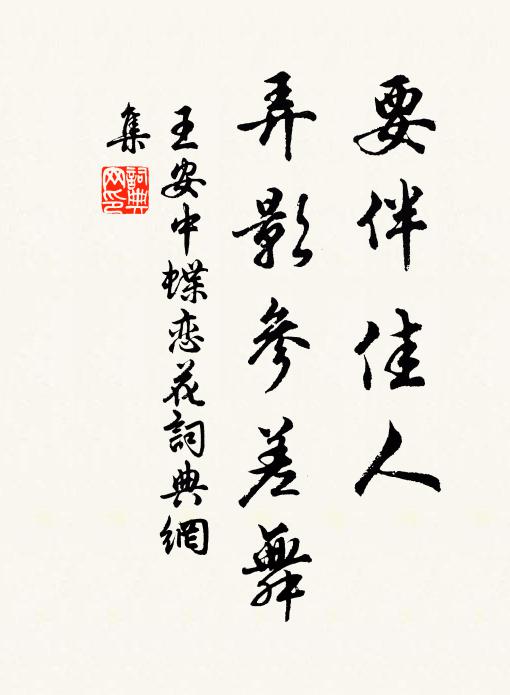 要伴佳人
弄影參差舞
王安中蝶恋花詞典網
集
詞典
网印